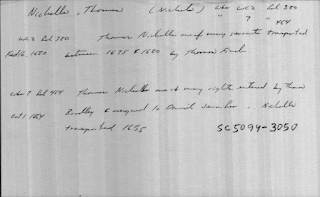 Nicholls, Thomas (Nichols) WC2 Fol 380
" ? " 464
WC2 Fol 380 Thomas Nicholls one of many servants transported
Feb 16 1680 between 1675 & 1680 by Thomas
Fol 464 Thomas Nicholls one of many rights entered by Thomas
Oct 1684 & assigned to Daniel Nicholls
transported 1655
SC5094-3050